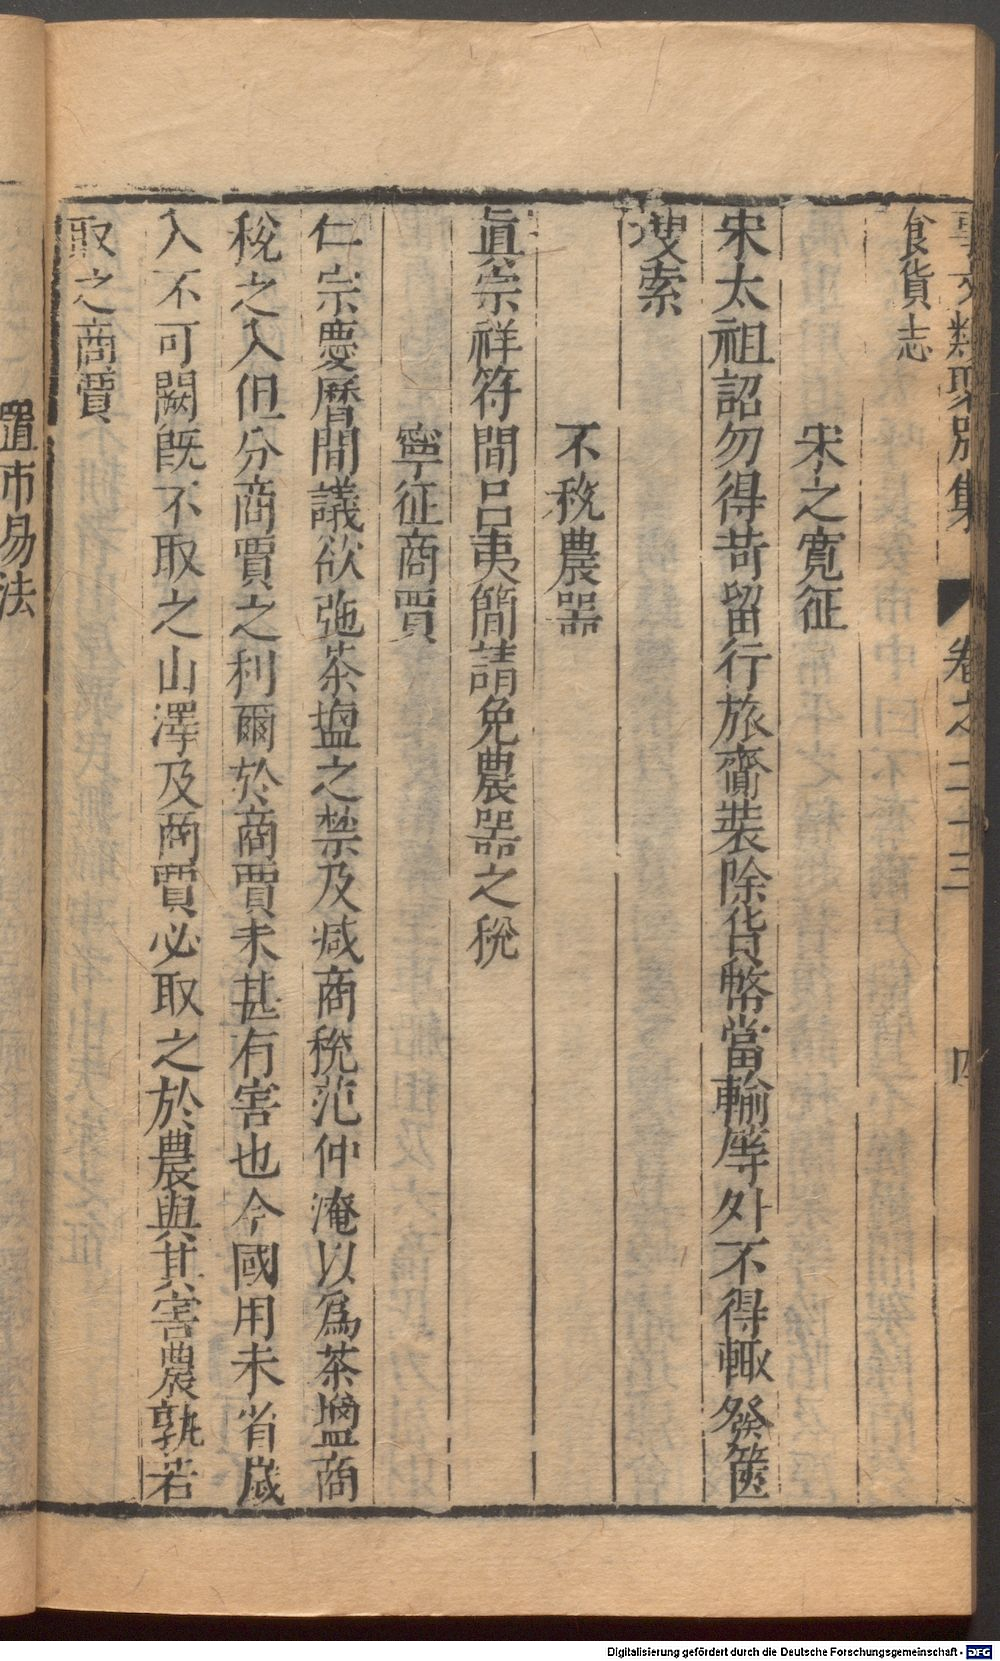 事文類聚別集 卷之二十三 四
食貨志
宋之寬征
宋太祖詔勿得苛留行旅齎裝除貨幣當輸筭外不得輙發篋
搜索
不稅農器
眞宗祥符間呂夷簡請免農器之稅
寧征商賈
仁宗慶曆間議欲弛茶塩之禁及减商稅范仲淹以爲茶鹽商
稅之入但分商賈之利爾於商賈未甚有害也今國用未省歲
入不可闕旣不取之山澤及商賈必取之於農與其害農孰若
取之商賈
置市易法
Digitalisierung gefördert durch die Deutsche Forschungsgemeinschaft - DFG